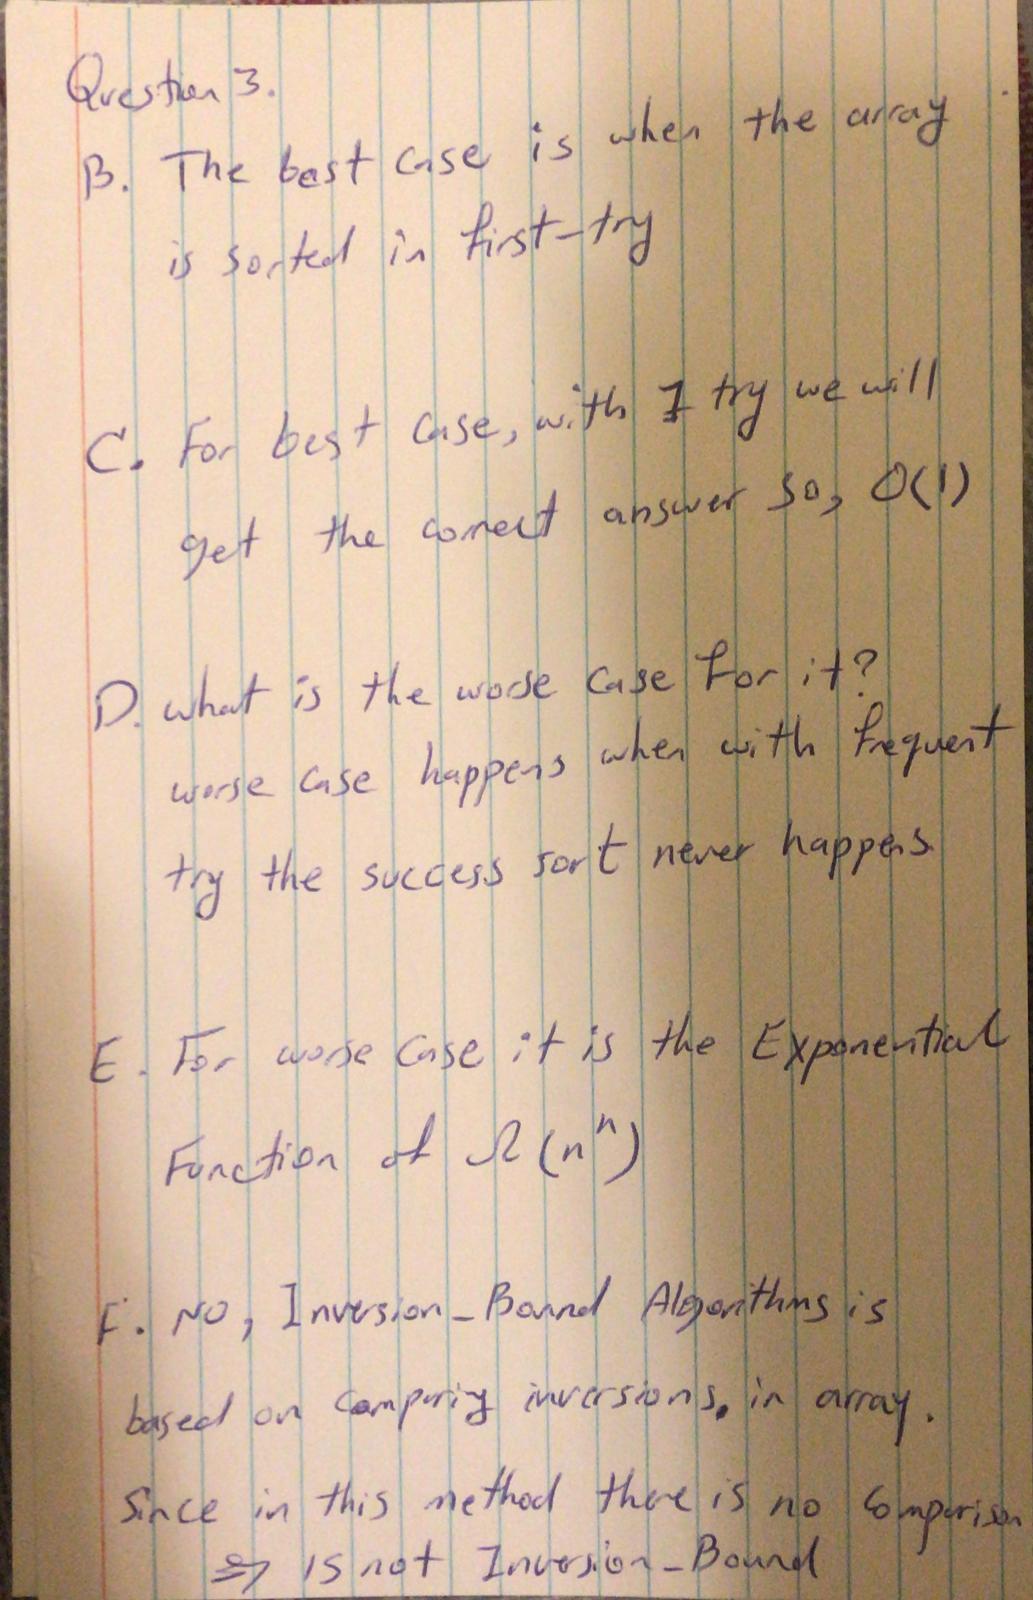 Question 3.
B. The best case is when the array
is sorted in first-try
C. For best case, with 1 try we will
get the correct answer so, O(1)
D. what is the worse case for it?
worse case happens when with frequent
try the success sort never happens
E. For worse case it is the Exponential
Function of Ω(nⁿ)
F. NO, Inversion-Bound Algorithms is
based on comparing inversions, in array.
Since in this method there is no comparison
⇒ is not Inversion-Bound